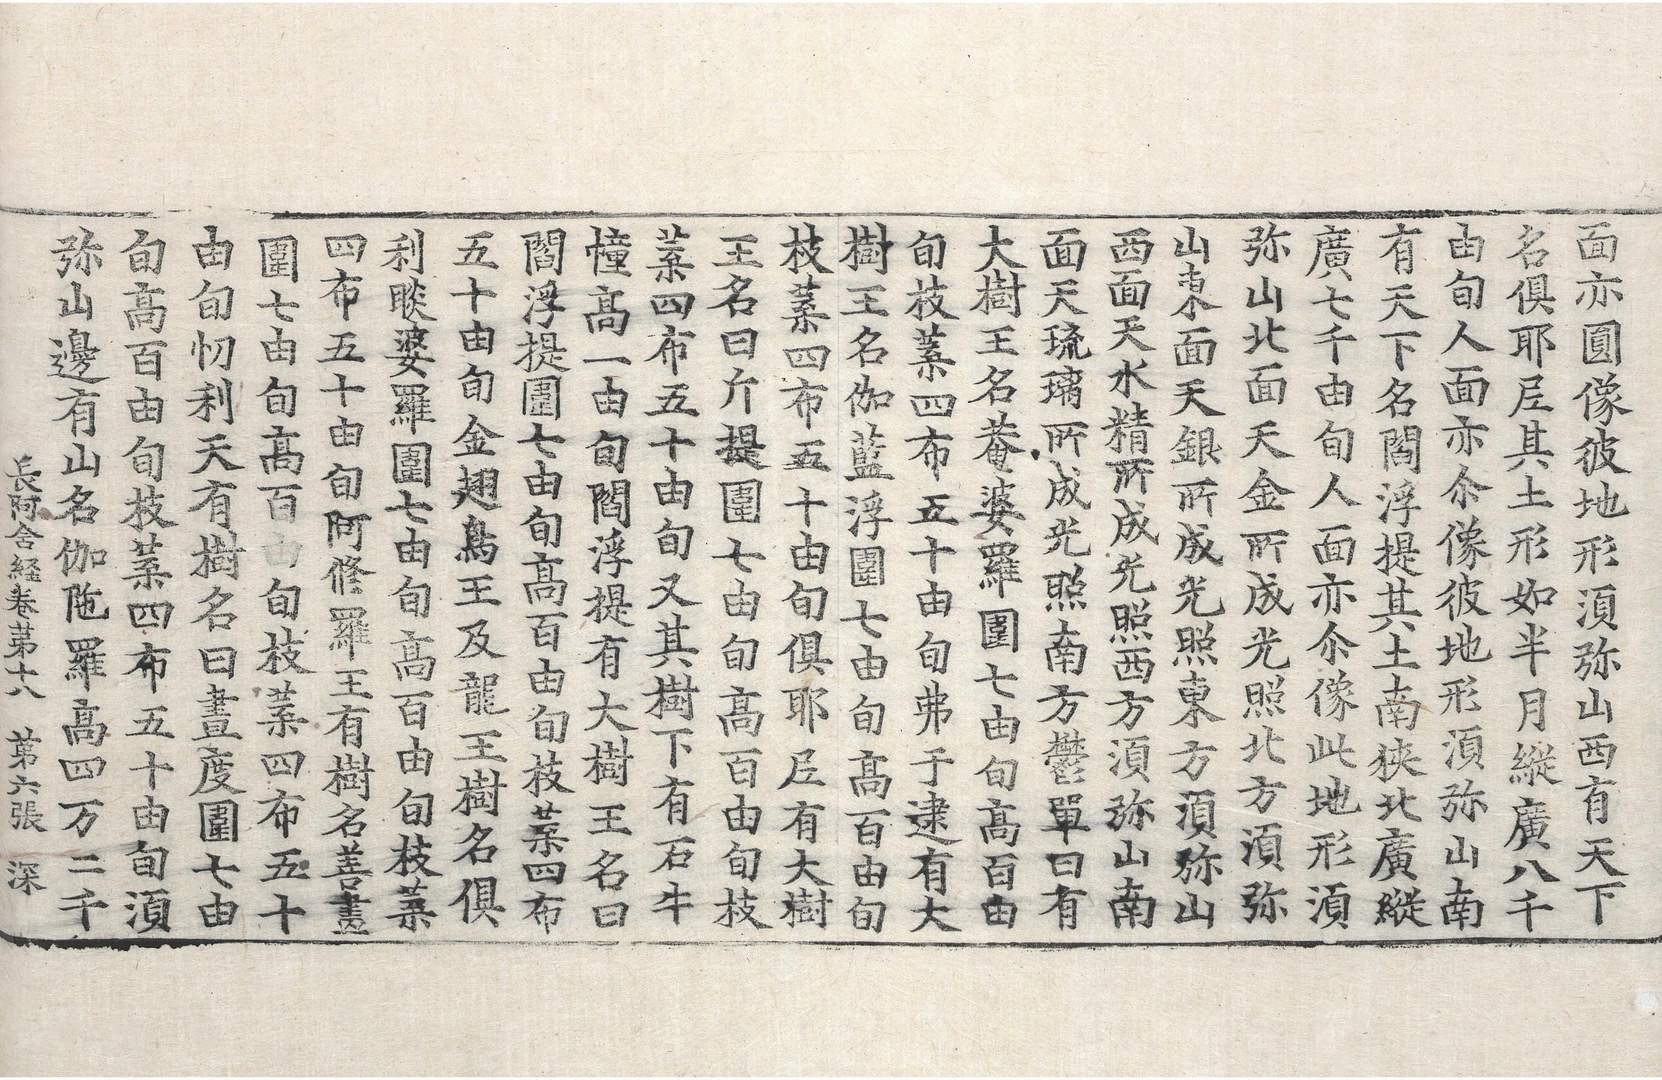 面亦圓像彼地形湏弥山西有天下
名俱耶尼其土形如半月縱廣八千
由旬人面亦尒像彼地形湏弥山南
有天下名閻浮提其土南狹北廣縱
廣七千由旬人面亦尒像此地形湏
弥山北面天金所成光照北方湏弥
山東面天銀所成光照東方湏弥山
西面天水精所成光照西方湏弥山南
面天琉璃所成光照南方鬱單曰有
大樹王名菴婆羅圍七由旬髙百由
旬枝葉四布五十由旬弗于逮有大
樹王名伽藍浮圍七由旬髙百由旬
枝葉四布五十由旬俱耶尼有大樹
王名曰斤提圍七由旬髙百由旬枝
葉四布五十由旬又其樹下有石牛
幢髙一由旬閻浮提有大樹王名曰
閻浮提圍七由旬髙百由旬枝葉四布
五十由旬金翅鳥王及龍王樹名俱
利睒婆羅圍七由旬髙百由旬枝葉
四布五十由旬阿修羅王有樹名善畫
圍七由旬髙百由旬枝葉四布五十
由旬忉利天有樹名曰晝度圍七由
旬髙百由旬枝葉四布五十由旬湏
弥山邊有山名伽陁羅髙四万二千
長阿含経卷苐十八　苐六張　深